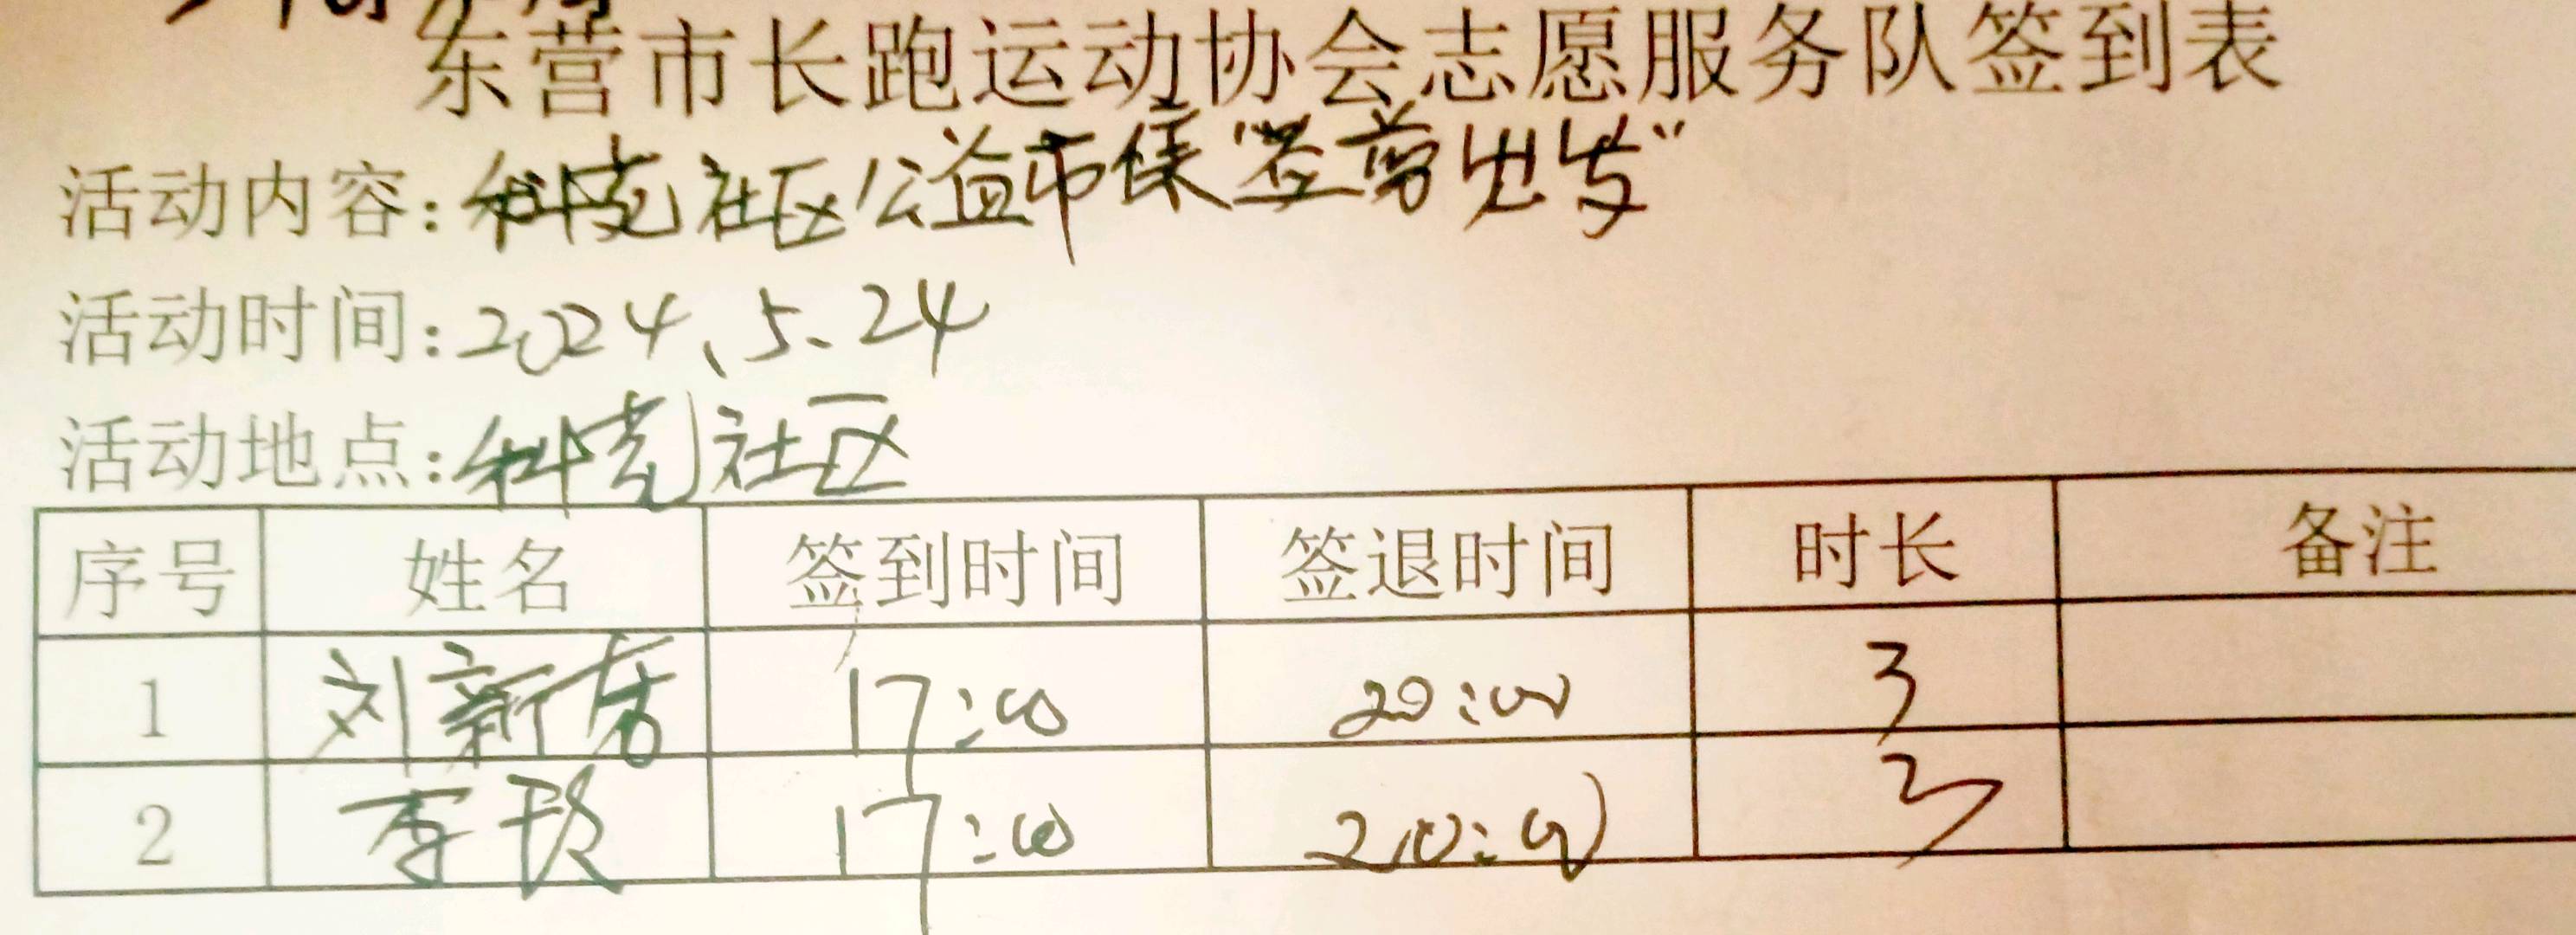 东营市长跑运动协会志愿服务队签到表
活动内容:科克社区公益市集"签剪出发"
活动时间:2024、5、24
活动地点:科克社区
序号 姓名 签到时间 签退时间 时长 备注
1 刘新 17:00 20:00 3
2 李 17:00 20:00 3